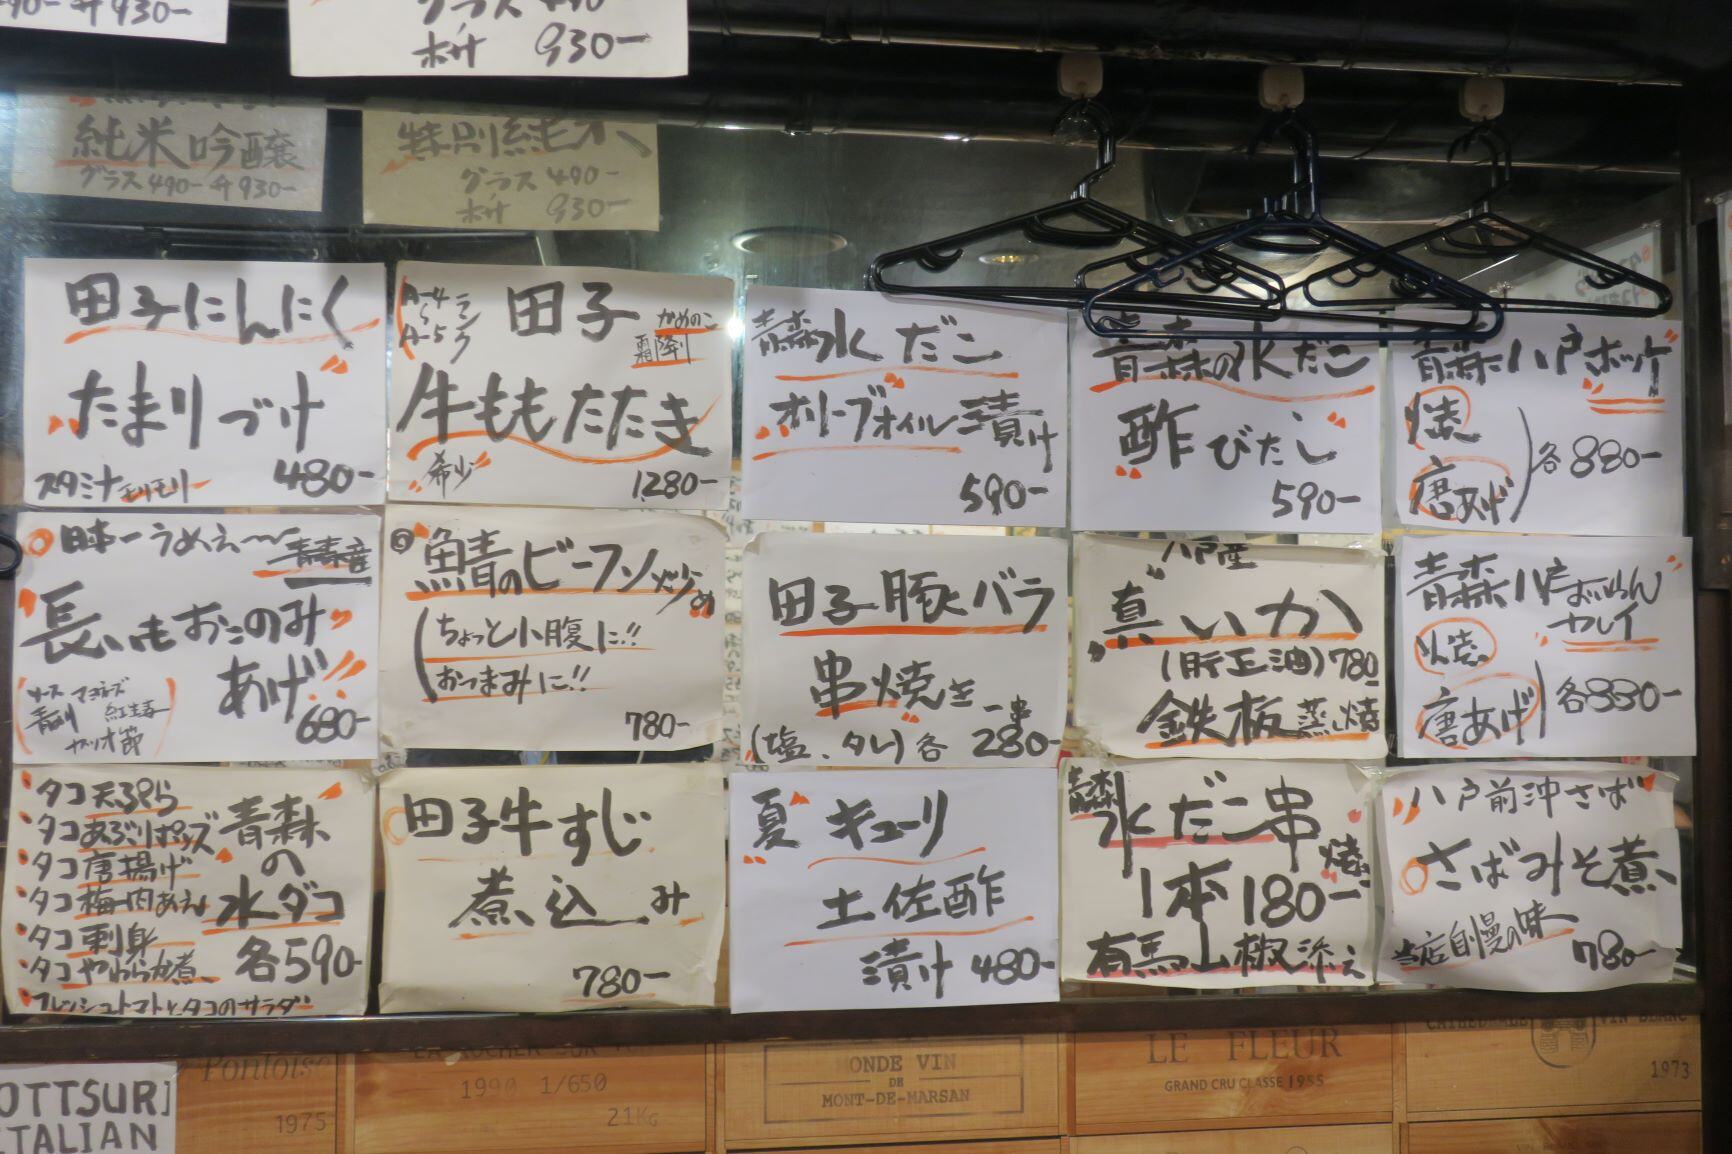 490- 升 930-
グラス 490-
升 930-
純米吟醸
グラス490- 升930-
特別純米
グラス 490-
升 930-
田子にんにく
たまりづけ
スタミナモリモリ 480-
A-4
A-5 ランク
田子
かめのこ
霜降り
牛ももたたき
希少 1280-
青森水だこ
オリーブオイル漬け
590-
青森の水だこ
酢びたし
590-
青森八戸ホッケ
焼
唐あげ
各880-
日本一うめぇ〜 青森産
長いもおこのみ
あげ!!
ソース マヨネーズ
青のり 紅生姜
カツオ節
680-
鯖のビーフン炒め
ちょっと小腹に!!
おつまみに!!
780-
田子豚バラ
串焼き
一串
(塩、タレ)各 280-
八戸産
真いか
(肝正油)780
鉄板蒸し焼
青森八戸
焼
唐あげ
各880-
タコ天ぷら
タコあぶりポンズ
タコ唐揚げ
タコ梅肉あえ
タコ刺身
タコやわらか煮
フレッシュトマトとタコのサラダ
青森
の
水ダコ
各590-
田子牛すじ
煮込み
780-
夏 キューリ
土佐酢
漬け 480-
青森水だこ串
焼
1本180-
有馬山椒添え
八戸前沖さば
さばみそ煮
当店自慢の味
780-
Pontoise
1975
1990 1/650
21KG
MONDE VIN
DE
MONT-DE-MARSAN
LE FLEUR
GRAND CRU CLASSE 1955
VIN BLANC
1973
OTTSURI
ITALIAN